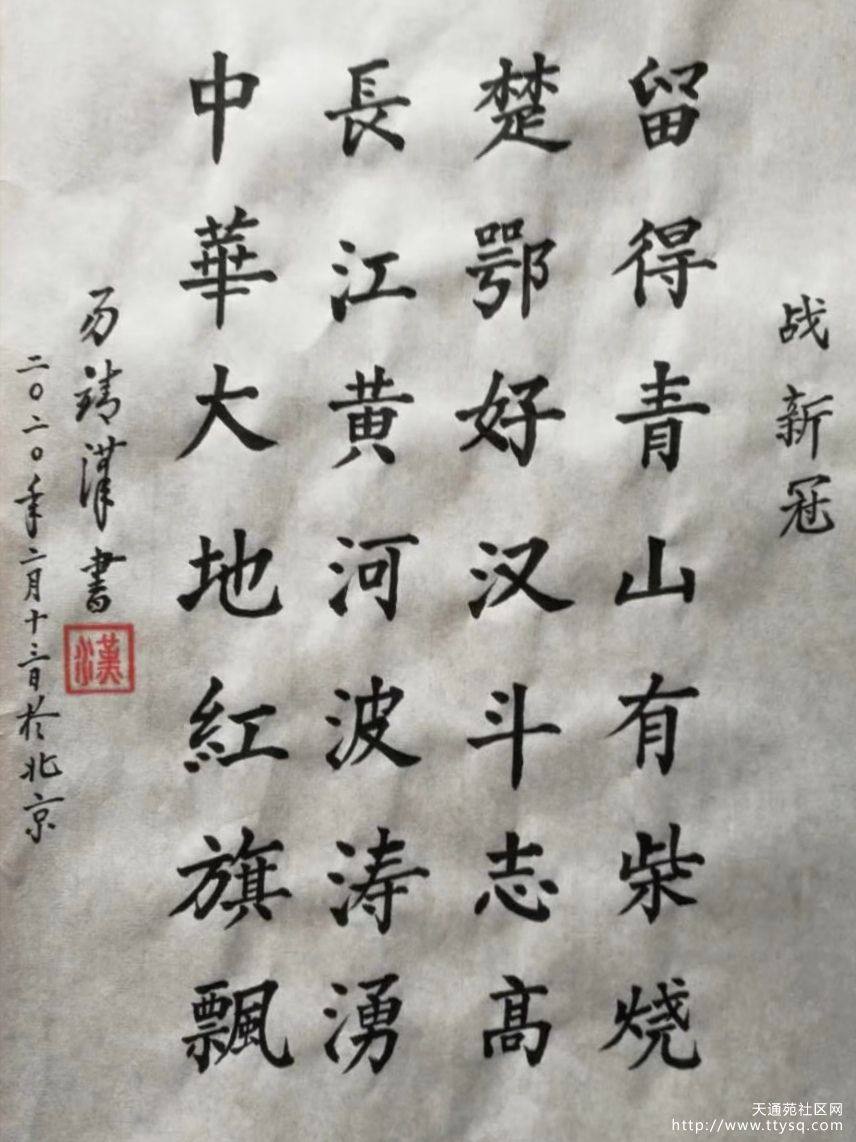 战新冠
留得青山有柴烧
楚鄂好汉斗志高
長江黄河波涛湧
中華大地紅旗飄
易靖漢書
二〇二〇年二月十三日於北京
漢
天通苑社区网
http://www.ttysq.com